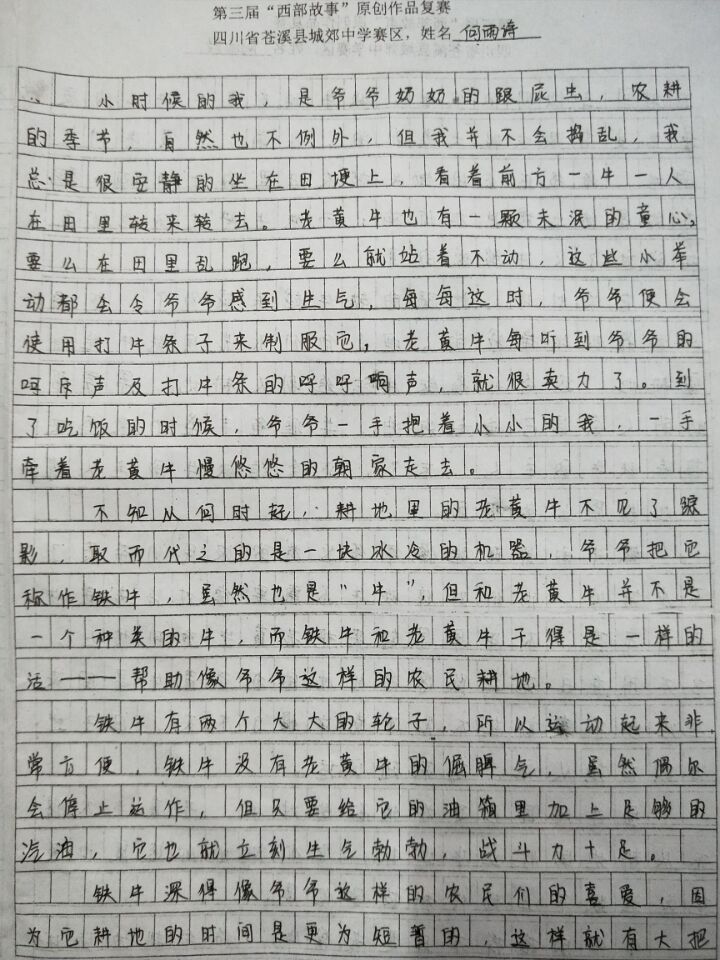 第三届“西部故事”原创作品复赛
四川省苍溪县城郊中学赛区，姓名 何雨诗
小时候的我，是爷爷奶奶的跟屁虫，农耕
的季节，自然也不例外，但我并不会捣乱，我
总是很安静的坐在田埂上，看着前方一牛一人
在田里转来转去。老黄牛也有一颗未泯的童心，
要么在田里乱跑，要么就站着不动，这些小举
动都会令爷爷感到生气，每每这时，爷爷便会
使用打牛条子来制服它，老黄牛每听到爷爷的
呵斥声及打牛条的呼呼响声，就很卖力了。到
了吃饭的时候，爷爷一手抱着小小的我，一手
牵着老黄牛慢悠悠的朝家走去。
不知从何时起，耕地里的老黄牛不见了踪
影，取而代之的是一块冰冷的机器，爷爷把它
称作铁牛，虽然也是“牛”，但和老黄牛并不是
一个种类的牛，而铁牛和老黄牛干得是一样的
活——帮助像爷爷这样的农民耕地。
铁牛有两个大大的轮子，所以运动起来非
常方便，铁牛没有老黄牛的倔脾气，虽然偶尔
会停止运作，但只要给它的油箱里加上足够的
汽油，它也就立刻生气勃勃，战斗力十足。
铁牛深得像爷爷这样的农民们的喜爱，因
为它耕地的时间是更为短暂的，这样就有大把